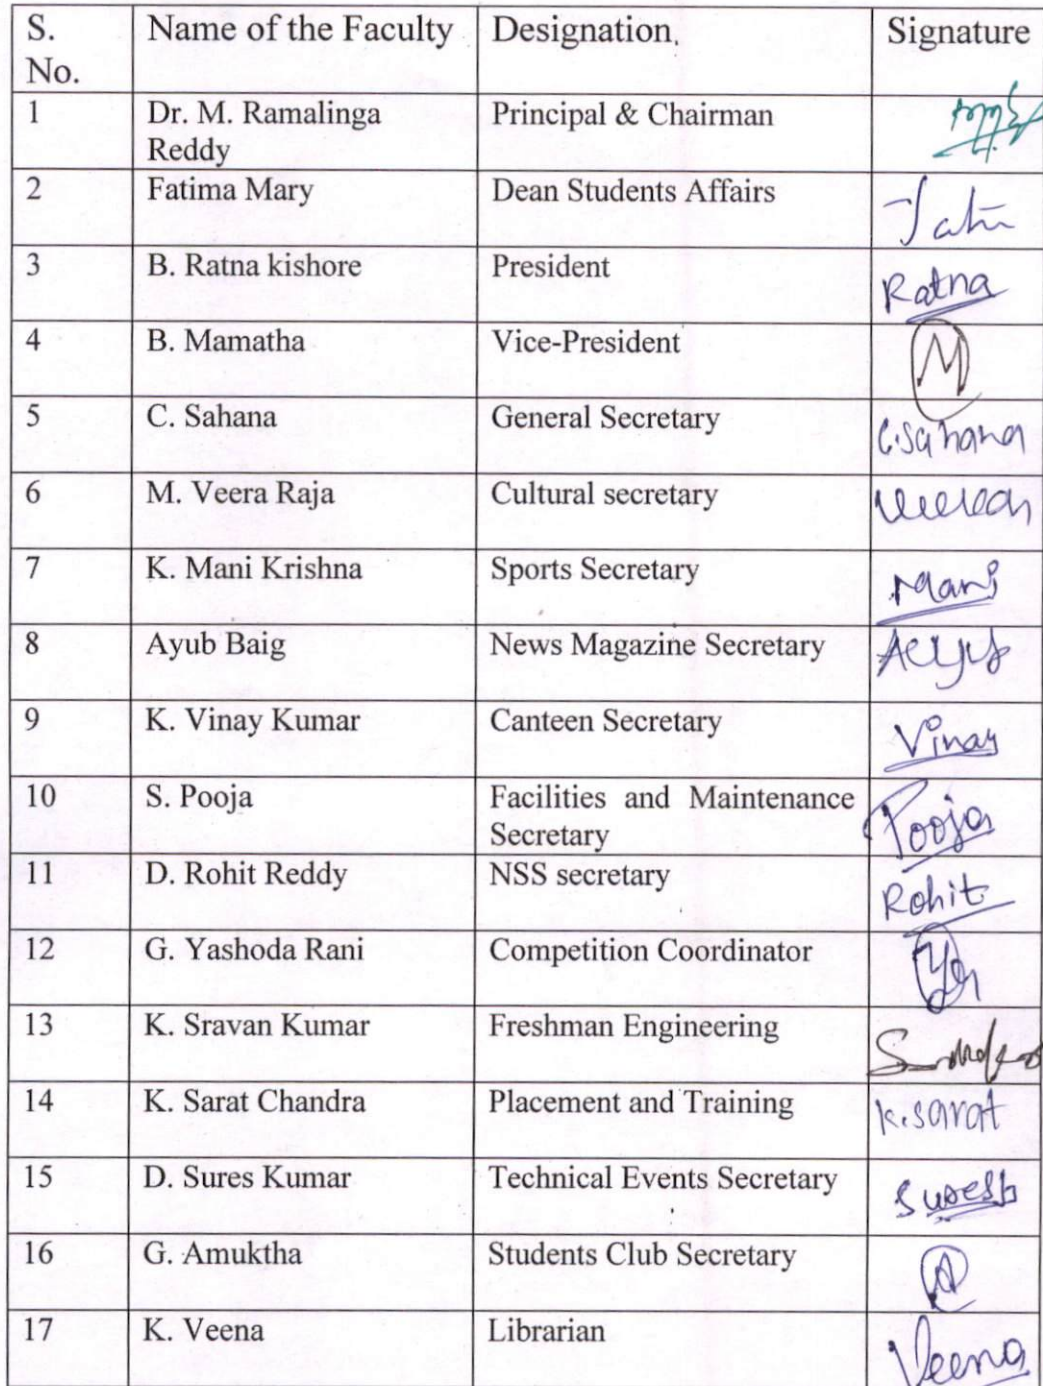 S. No. Name of the Faculty Designation Signature
1 Dr. M. Ramalinga Reddy Principal & Chairman
2 Fatima Mary Dean Students Affairs
3 B. Ratna kishore President Ratna
4 B. Mamatha Vice-President M
5 C. Sahana General Secretary C.Sahana
6 M. Veera Raja Cultural secretary
7 K. Mani Krishna Sports Secretary Mani
8 Ayub Baig News Magazine Secretary
9 K. Vinay Kumar Canteen Secretary Vinay
10 S. Pooja Facilities and Maintenance Secretary Pooja
11 D. Rohit Reddy NSS secretary Rohit
12 G. Yashoda Rani Competition Coordinator
13 K. Sravan Kumar Freshman Engineering
14 K. Sarat Chandra Placement and Training K.Sarat
15 D. Sures Kumar Technical Events Secretary Suresh
16 G. Amuktha Students Club Secretary A
17 K. Veena Librarian Veena